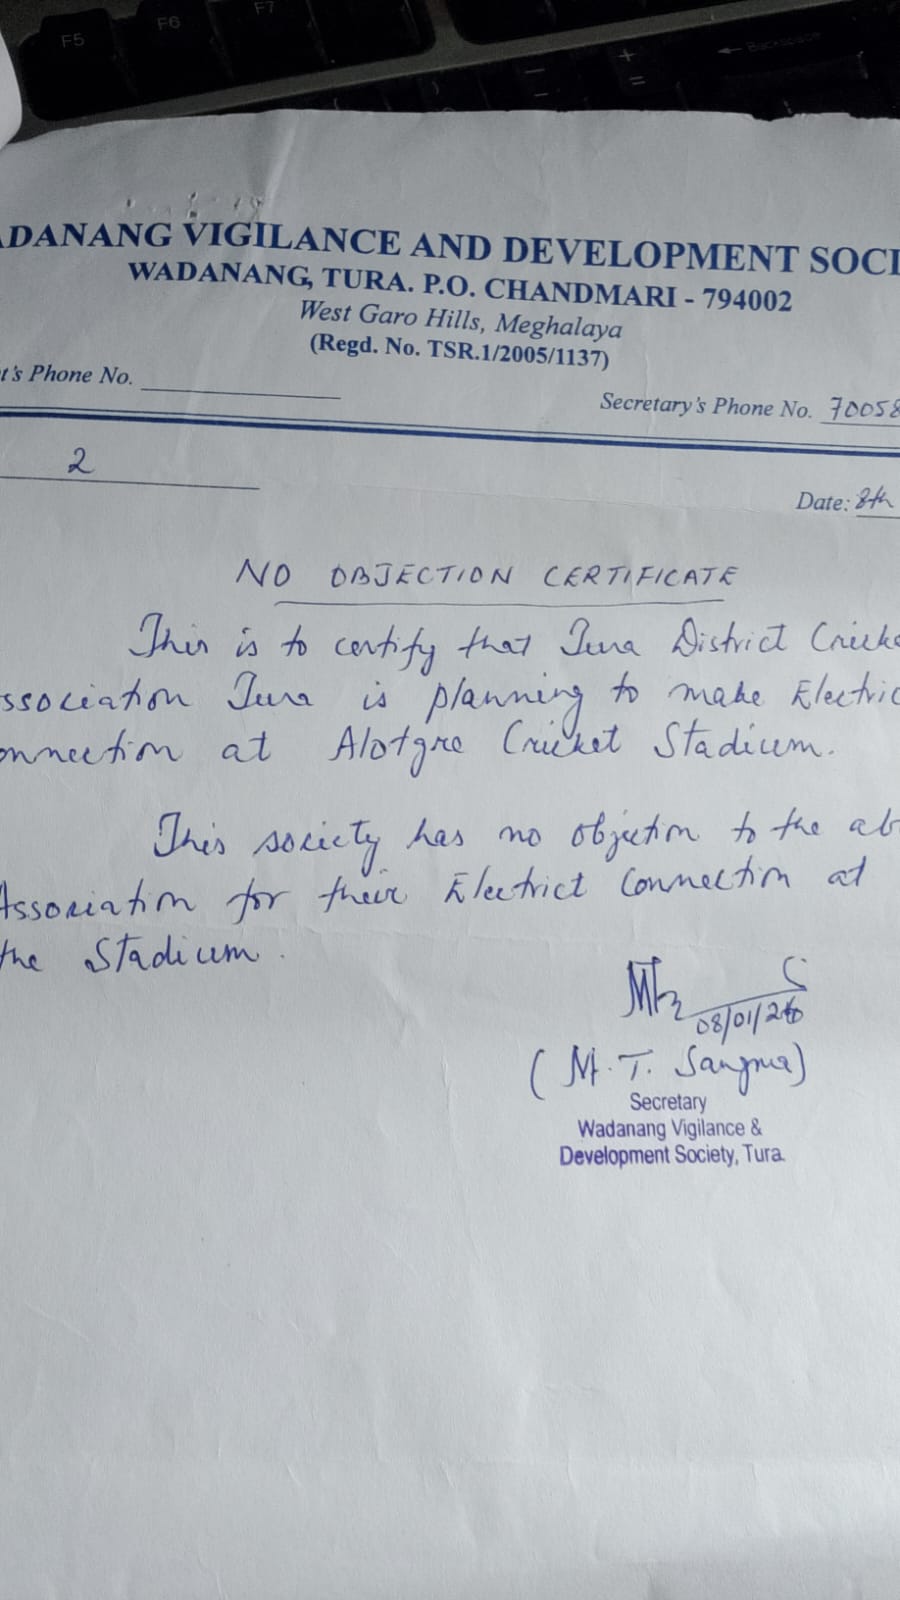 F5 F6 F7
Backspace
ADANANG VIGILANCE AND DEVELOPMENT SOCI
WADANANG, TURA. P.O. CHANDMARI - 794002
West Garo Hills, Meghalaya
(Regd. No. TSR.1/2005/1137)
t's Phone No.
Secretary's Phone No. 70058
2
Date: 8th
NO OBJECTION CERTIFICATE
This is to certify that Tura District Cricke
ssociation Tura is planning to make Electric
onnection at Alotgre Cricket Stadium.
This society has no objection to the ab
Association for their Electrict Connection at
the Stadium.
08/01/26
(M. T. Sangma)
Secretary
Wadanang Vigilance &
Development Society, Tura.